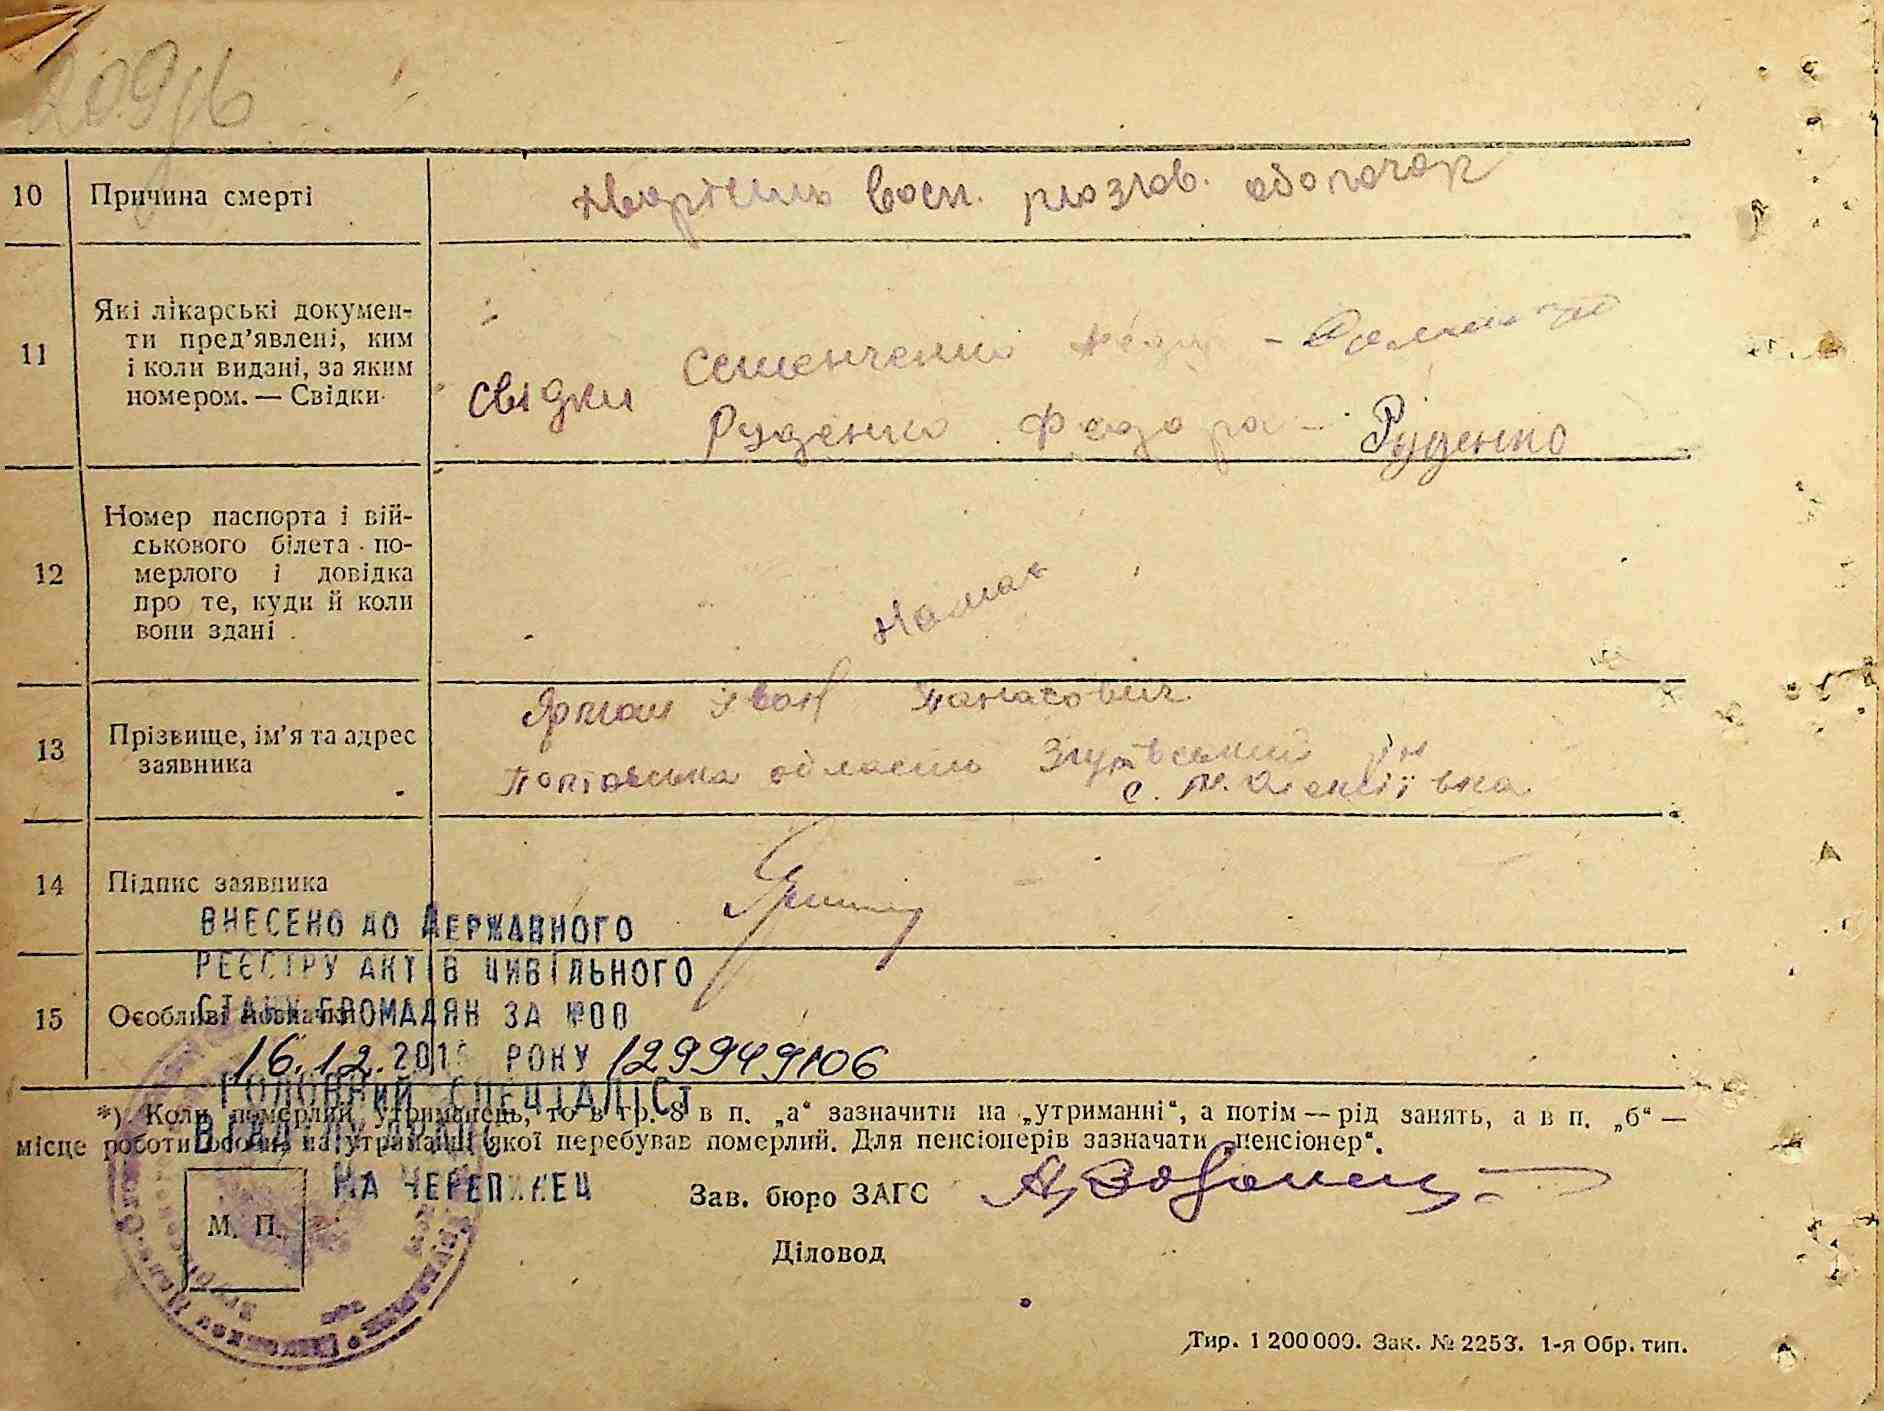 209/6
10 Причина смерті
восп. мозгов. оболочок
11 Які лікарські докумен-
ти пред'явлені, ким
і коли видані, за яким
номером. — Свідки
Свідки Семенченко
Руденко Федора - Руденко
12 Номер паспорта і вій-
ськового білета по-
мерлого і довідка
про те, куди й коли
вони здані
Немає
13 Прізвище, ім'я та адрес
заявника
Іван Панасович
Полтавська область Згурівський р-н
с. М. Алексіївка
14 Підпис заявника
ВНЕСЕНО ДО ДЕРЖАВНОГО
РЕЄСТРУ АКТІВ ЦИВІЛЬНОГО
СТАНУ ГРОМАДЯН ЗА №00
15 Особливі позначки
16.12.201 РОКУ 129949106
ГОЛОВНИЙ СПЕЦІАЛІСТ
*) Коли померлий утриманець, то в гр. 8 в п. „а“ зазначити на „утриманні“, а потім — рід занять, а в п. „б“ —
місце роботи особи, на утриманні якої перебував померлий. Для пенсіонерів зазначати „пенсіонер“.
НА ЧЕРЕПИНЕЦ
Зав. бюро ЗАГС
М. П.
Діловод
Тир. 1 200 000. Зак. № 2253. 1-я Обр. тип.